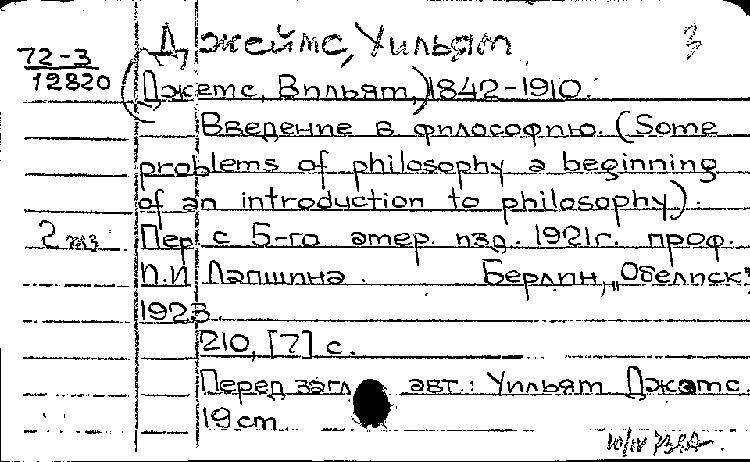 Джеймс, Уильям 3
72-3
12820
(Джемс, Вильям,) 1842-1910.
Введение в философию. (Some
problems of philosophy a beginning
of an introduction to philosophy).
2 экз Пер с 5-го амер. изд. 1921г. проф.
П.И Лапшина. Берлин, „Обелиск"
1923
210, [7] с.
Перед загл авт.: Уильям Джемс.
19 cm